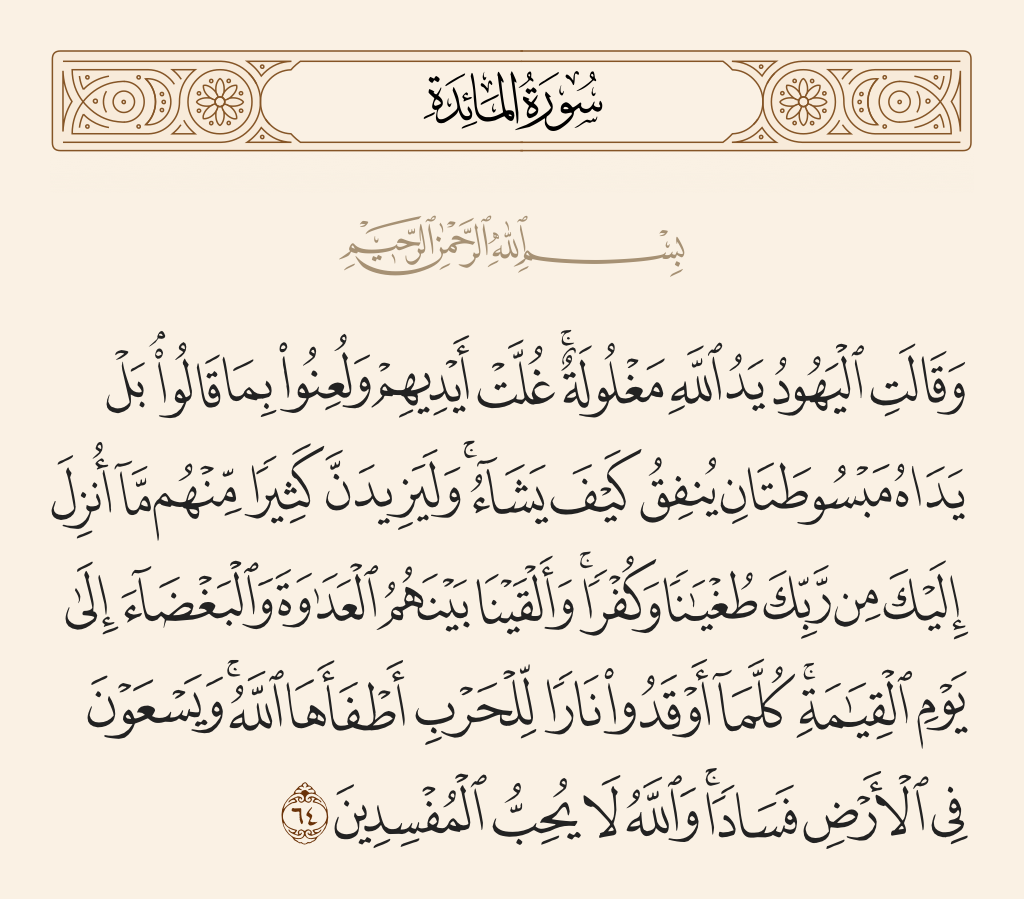 سُورَةُ المَائِدَةِ
بِسْمِ ٱللَّهِ ٱلرَّحْمَٰنِ ٱلرَّحِيمِ
وَقَالَتِ ٱلْيَهُودُ يَدُ ٱللَّهِ مَغْلُولَةٌۚ غُلَّتْ أَيْدِيهِمْ وَلُعِنُوا۟ بِمَا قَالُوا۟ۘ بَلْ
يَدَاهُ مَبْسُوطَتَانِ يُنفِقُ كَيْفَ يَشَآءُۚ وَلَيَزِيدَنَّ كَثِيرًا مِّنْهُم مَّآ أُنزِلَ
إِلَيْكَ مِن رَّبِّكَ طُغْيَـٰنًا وَكُفْرًاۚ وَأَلْقَيْنَا بَيْنَهُمُ ٱلْعَدَٰوَةَ وَٱلْبَغْضَآءَ إِلَىٰ
يَوْمِ ٱلْقِيَـٰمَةِۚ كُلَّمَآ أَوْقَدُوا۟ نَارًا لِّلْحَرْبِ أَطْفَأَهَا ٱللَّهُۚ وَيَسْعَوْنَ
فِى ٱلْأَرْضِ فَسَادًاۚ وَٱللَّهُ لَا يُحِبُّ ٱلْمُفْسِدِينَ ٦٤